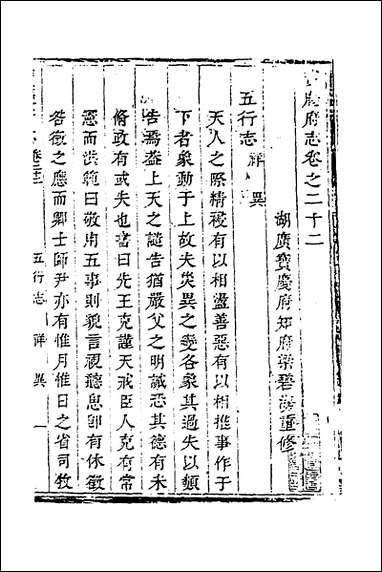 慶府志卷之二十二
湖廣寶慶府知府梁碧海重修
五行志 祥異
天人之際精祲有以相盪善惡有以相推事作于
下者象動于上故夫災異之變各象其過失以類
告焉葢上天之譴告猶嚴父之明誡恐其德有未
脩政有或失也書曰先王克謹天戒臣人克有常
憲而洪範曰敬用五事則貌言視聽思卽有休徵
咎徵之應而卿士師尹亦有惟月惟日之省司牧
五行志 祥異 一